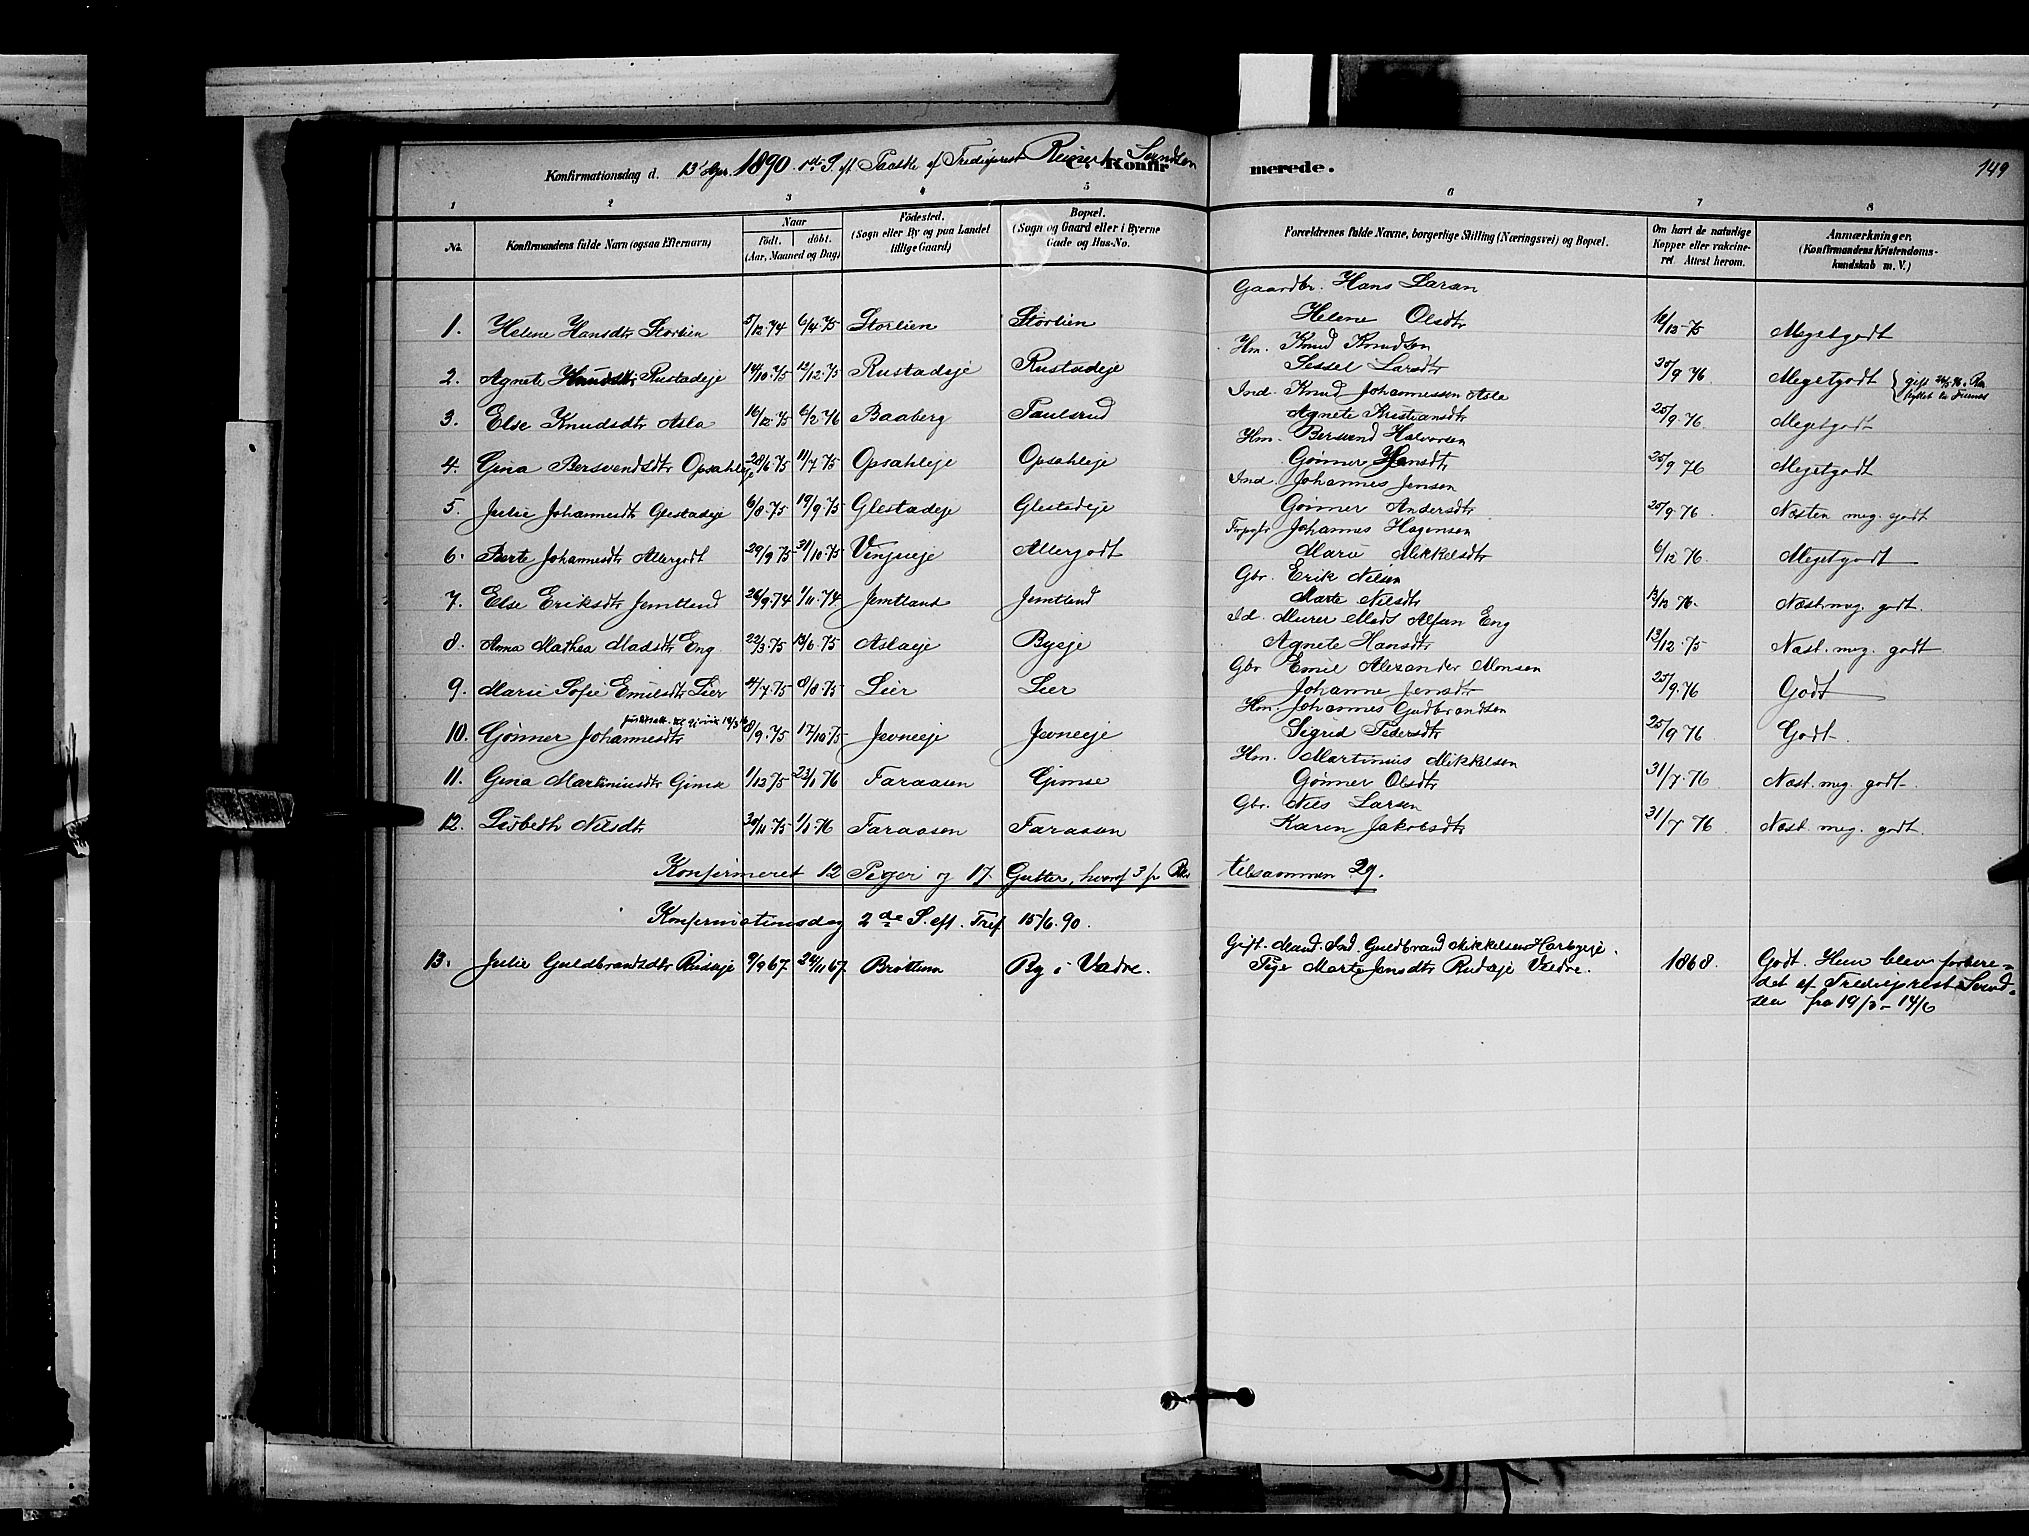 149
Konfirmationsdag d. 13 Apr. 1890. 1ste S. eft Paaske af Tredieprest Reinert Svendsen
C. Konfirmerede.
1 2 3 4 5 6 7 8
No. Konfirmandens fulde Navn (ogsaa Efternavn) Naar født. døbt. (Aar, Maaned og Dag) Fødested. (Sogn eller By og paa Landet tillige Gaard) Bopæl. (Sogn og Gaard eller i Byerne Gade og Hus-No. Forældrenes fulde Navne, borgerlige Stilling (Næringsvei) og Bopæl. Om havt de naturlige Kopper eller vakcineret. Attest herom. Anmærkninger. (Konfirmandens Kristendomskundskab m. V.)
Gaardbr. Hans Larsen
1. Helene Hansdtr Storlien 5/12 74 6/4 75 Storlien Storlien Helene Olsdtr 75 Megetgodt
Hm. Knud Knudsen
2. Agnete Knudsdtr Rustadeje 14/10 75 12/12 75 Rustadeje Rustadeje Sessel Larsdtr 25/9 76. Megetgodt
Ind. Knud Johannessen Asla
3. Else Knudsdtr Asla 16/12 75 6/2 76 Baaberg Paulsrud Agnete Kristiansdtr 25/9 76. Megetgodt
Hm. Bersvend Halvorsen
4. Gina Bersvendsdtr Opsahleje 28/6 75 11/7 75 Opsahleje Opsahleje Gønner Hansdtr 25/9 76 Megetgodt
Ind. Johannes Jensen
5. Julie Johannesdtr Glestadeje 6/8 75 19/9 75 Glestadeje Glestadeje Gønner Andersdtr 25/9 76. Næsten meg. godt
Johannes Hagensen
6. Berte Johannesdtr Allergodt 29/9 75 31/10 75 Vinjueje Allergodt Marie Mikkelsdtr 6/12 76. Megetgodt
Gbr. Erik Nilsen
7. Else Eriksdtr Jemtland 26/9 74 1/11 74 Jemtland Jemtland Marte Nilsdtr 76. Næst meg. godt.
Id. Murer Mads Alfsen Eng
8. Anna Mathea Madsdtr Eng. 22/3 75 13/6 75 Aslaeje Byeje Agnete Hansdtr 13/12 75 Næst. meg. godt
Gbr Emil Alexander Monsen
9. Marie Sofie Emilsdtr Lier 4/7 75 8/8 75 Lier Lier Johanne Jensdtr 25/9 76 Godt
Hm. Johannes Gudbrandsen
10. Gønner Johannesdtr 8/9 75 17/10 75 Jevneeje Jevneeje Sigrid Pedersdtr 25/9 76 Godt.
Hm. Martinius Mikkelsen
11. Gina Martiniusdtr Gimse 1/12 75 23/1 76 Faraasen Gimse Gønner Olsdtr 31/7 76 Næst meg. godt.
Gbr. Nils Larsen
12. Lisbeth Nilsdtr 30/11 75 1/1 76 Faraasen Faraasen Karen Jakobsdtr 31/7 76 Næst. meg. godt.
Konfirmeret 12 Piger og 17 Gutter, hvoraf 3 fr tilsammen 29.
Konfirmationsdag 2de S. eft. Tref. 15/6 90.
Gift. Mand. Ind. Guldbrand Mikkelsen Harbyeje.
13. Julie Guldbrandsdtr Rudeje 9/9 67 24/11 67 Brøttum By i Vardre. Pige Marte Jensdtr Rudeje Vardre. 1868. Godt. Hun blev forbere-
det af Trediepreest Svend-
sen fra 19/5 - 14/6